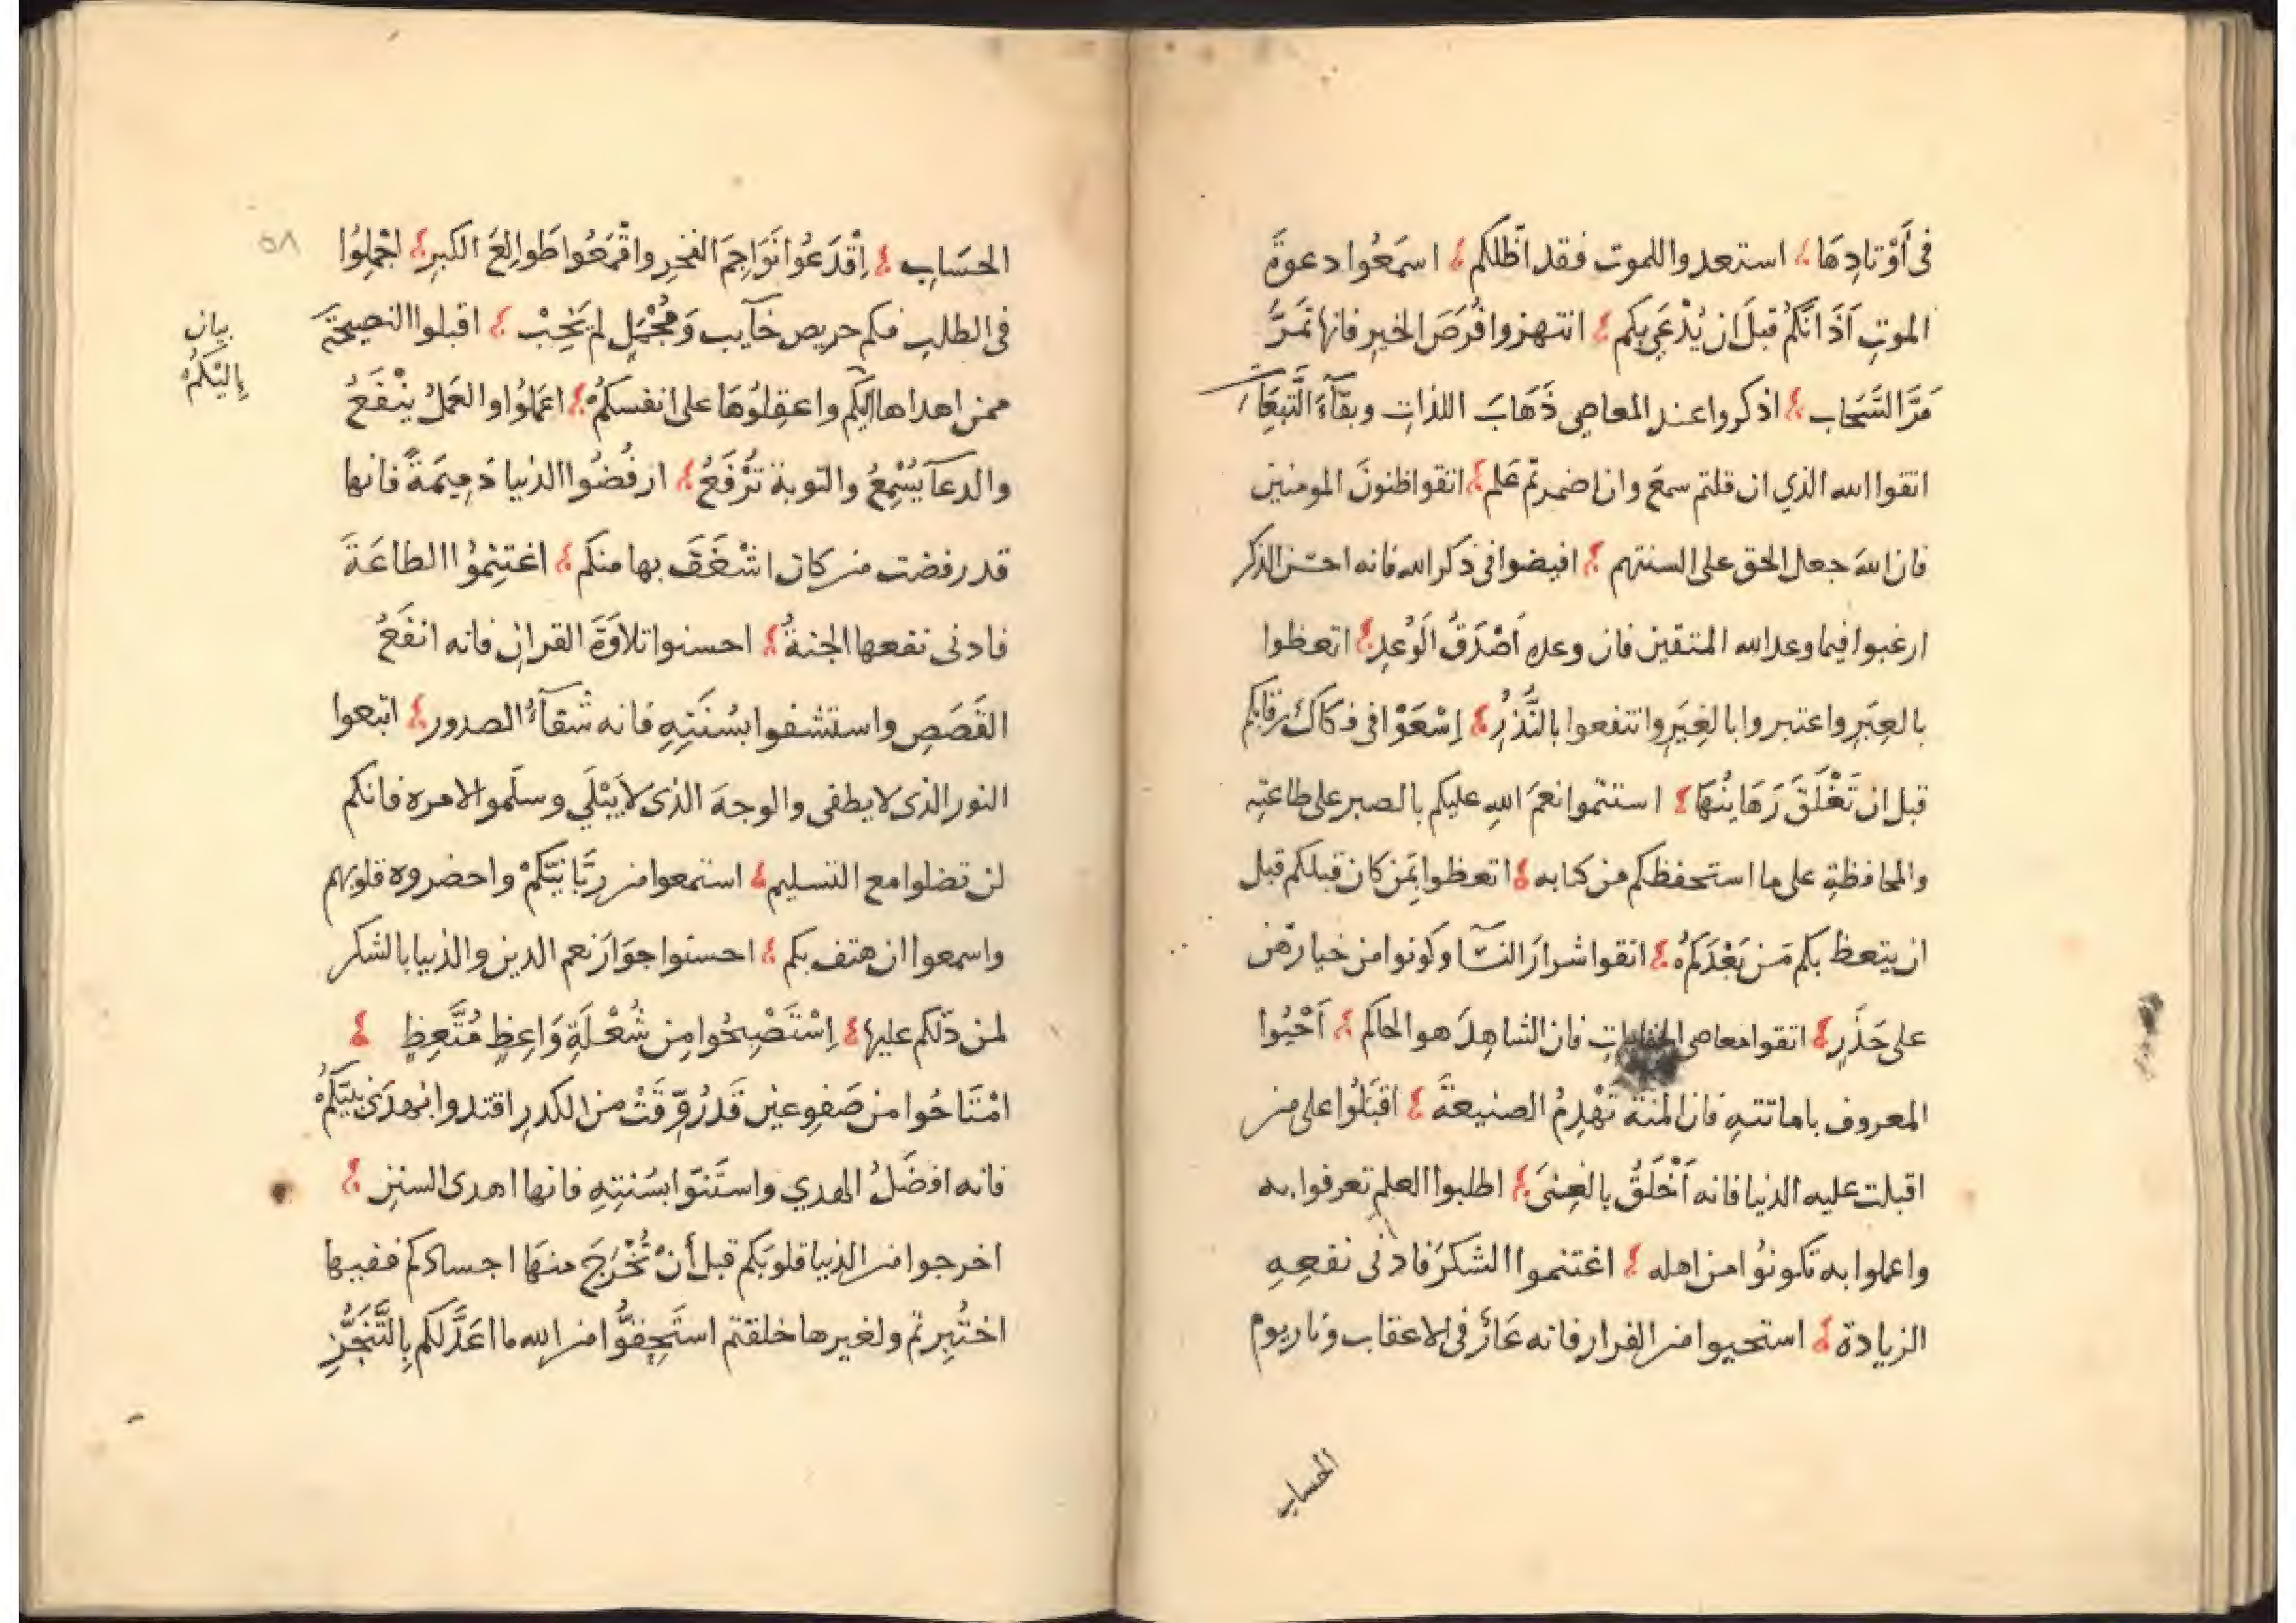 في أَوْتادِهَا استعدوا للموت فقد اظلكم اسمَعُوا دعوةَ
الموتِ آذَانَكُم قبلَ ان يُدْعَى بكم انتهزوا فُرَصَ الخيرِ فانها تَمرُّ
مَرَّ السَّحَاب اذكروا عند المعاصي ذَهَابَ اللذاتِ وبقآءَ التَّبِعَات
اتقوا الله الذي ان قلتم سمعَ وان اضمرتم عَلم اتقوا ظنونَ المومنين
فان اللهَ جعل الحق على السنتهم افيضوا في ذكر الله فانه احسَن الذكر
ارغبوا فيما وعد الله المتقين فان وعده اَصْدَقُ الْوَعدِ اتعظوا
بالعِبَرِ واعتبروا بالغِيَرِ وانتفعوا بالنُّذُرِ اِسْعَوْا في فكاك رقابكم
قبل ان تَغْلَقَ رَهَاينُهَا استتموا نعمَ اللهِ عليكم بالصبر على طاعتِه
والمحافظةِ على ما استحفظكم من كتابه اتعظوا بمَن كان قبلكم قبل
ان يتعظ بكم مَن بَعْدَكُمْ اتقوا شرارَ النسآ وكونوا من خيارهن
على حَذَرٍ اتقوا معاصي الخلوات فان الشاهِدَ هو الحاكم اَحْيُوا
المعروف باماتتهِ فان المنةَ تَهْدِمُ الصنيعةَ اقبَلُوا على من
اقبلت عليه الدنيا فانه اَخْلَقُ بالغِنىَ اطلبوا العلم تعرفوا به
واعملوا به تكونوُا من اهله اغتنموا الشكرَ فادنى نفعِهِ
الزيادة استحيوا من الفرار فانه عَارٌ في الاعقاب ونار يوم
الحساب
٥٨
الحسَابِ اِقْدَعُوا نَوَاجِمَ الفخرِ واقْمَعُوا طَوالِعَ الكبرِ اجْمِلُوا
في الطلب فكم حريص خآيب وَمُجْمِلٍ لم يَخِبْ اقبلوا النصيحةَ
ممن اهداها اليكم واعقِلوُهَا على انفسكُمْ اعمَلوُا والعَمَلُ يَنْفَعُ
بيان
إِليْكُمْ
والدعآ يُسْمِعُ والتوبة تُرْفَعُ ارفُضُوا الدنيا ذَمِيمَةً فانها
قد رفضت من كان اشْغَفَ بها منكم اغتنِمُوا الطاعَةَ
فادنى نفعها الجنةُ احسنوا تلاوَةَ القرانِ فانه انفَعُ
القَصَصِ واستشفوا بسُنَتِهِ فانه شقآءُ الصدور اتبعوا
النور الذى لا يطفى والوجهَ الذى لا يَبْلَي وسلّموا لامره فانكم
لن تضلوا مع التسليم استمعوا من رَبَّانِيّكُمْ واحضروه قلوبهم
واسمعوا ان هتف بكم احسنوا جوَارَ نعم الدين والدنيا بالشكر
لمن دَلكم عليها اِسْتَصْبِحُوا مِن شُعْلَةِ وَاعِظٍ مُتَّعِظٍ
امْتَاحُوا من صَفوِ عين قَد رُوِّقَتْ من الكدرِ اقتدوا بهدَى نبيّكُمْ
فانه افضَلُ الهدي واستَنّوا بسُنتِهِ فانها اهدى السننِ
اخرجوا من الدنيا قلوبَكم قبل أنْ تُخْرَجَ منهَا اجسادكم ففيها
اختُبِرتم ولغيرها خلقتم استَحِقُّوا من الله ما اعَدَّ لكم بِالتَّنَجُّزِ